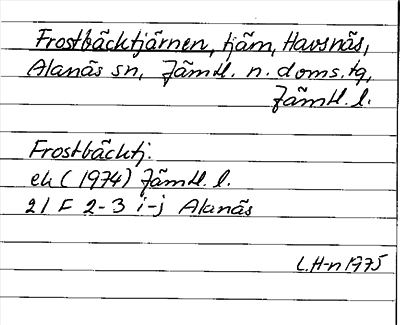 Frostbäcktjärnen, tjärn, Havsnäs,
Alanäs sn, Jämtl. n. doms.tg,
Jämtl. l.
Frostbäcktj.
ek (1974) Jämtl. l.
21 F 2-3 i-j Alanäs
L.H-n 1975